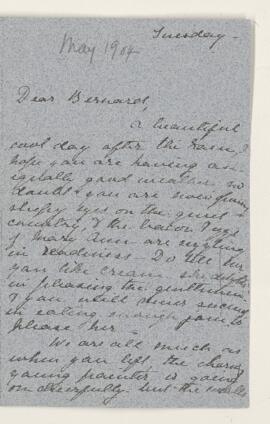 Tuesday -
May 1904
Dear Bernard,
A beautiful
cool day after the rain, I
hope you are having an
equally good weather, no
doubt you are now
eyes on the
country, & the
Mary Ann are
in readiness. Do tell her
you like cream, she delights
in pleasing the gentlemen
& you will never succeed
in eating enough to
please her -
We are all much as
when you left, the charming
young painter is going
on cheerfully - but the